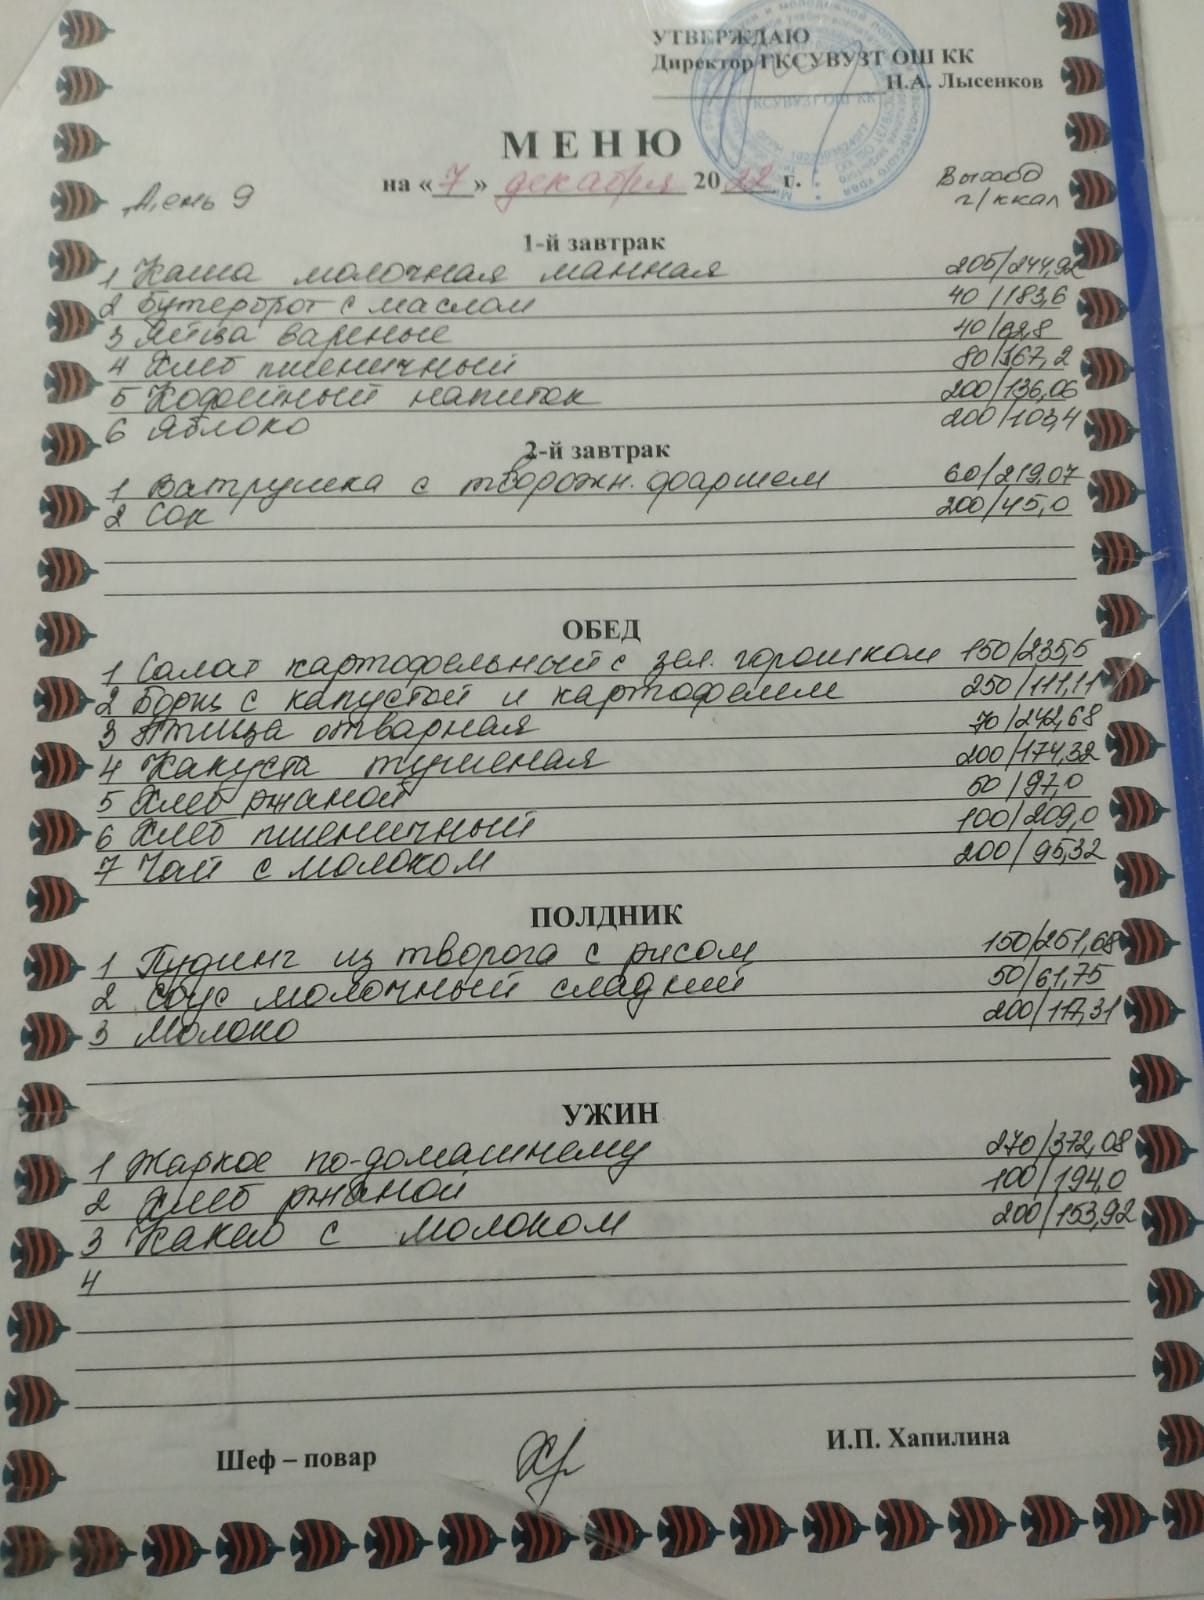 УТВЕРЖДАЮ
Директор ГКСУВУЗТ ОШ КК
Н.А. Лысенков
МЕНЮ
на «7» декабря 2022 г.
День 9
Выход
г/ккал
1-й завтрак
1 Каша молочная манная 205/244,92
2 Бутерброт с маслом 40/183,6
3 Яйца вареные 40/62,8
4 Хлеб пшеничный 80/167,2
5 Кофейный напиток 200/136,06
6 Яблоко 200/103,4
2-й завтрак
1 Ватрушка с творожн. фаршем 60/219,07
2 Сок 200/45,0
ОБЕД
1 Салат картофельный с зел. горошком 150/235,5
2 Борщ с капустой и картофелем 250/111,11
3 Птица отварная 70/242,68
4 Капуста тушеная 200/174,32
5 Хлеб ржаной 50/97,0
6 Хлеб пшеничный 100/209,0
7 Чай с молоком 200/95,32
ПОЛДНИК
1 Пудинг из творога с рисом 150/251,68
2 Соус молочный сладкий 50/61,75
3 Молоко 200/117,31
УЖИН
1 Жаркое по-домашнему 270/372,08
2 Хлеб ржаной 100/194,0
3 Какао с молоком 200/153,92
4
Шеф – повар
И.П. Хапилина